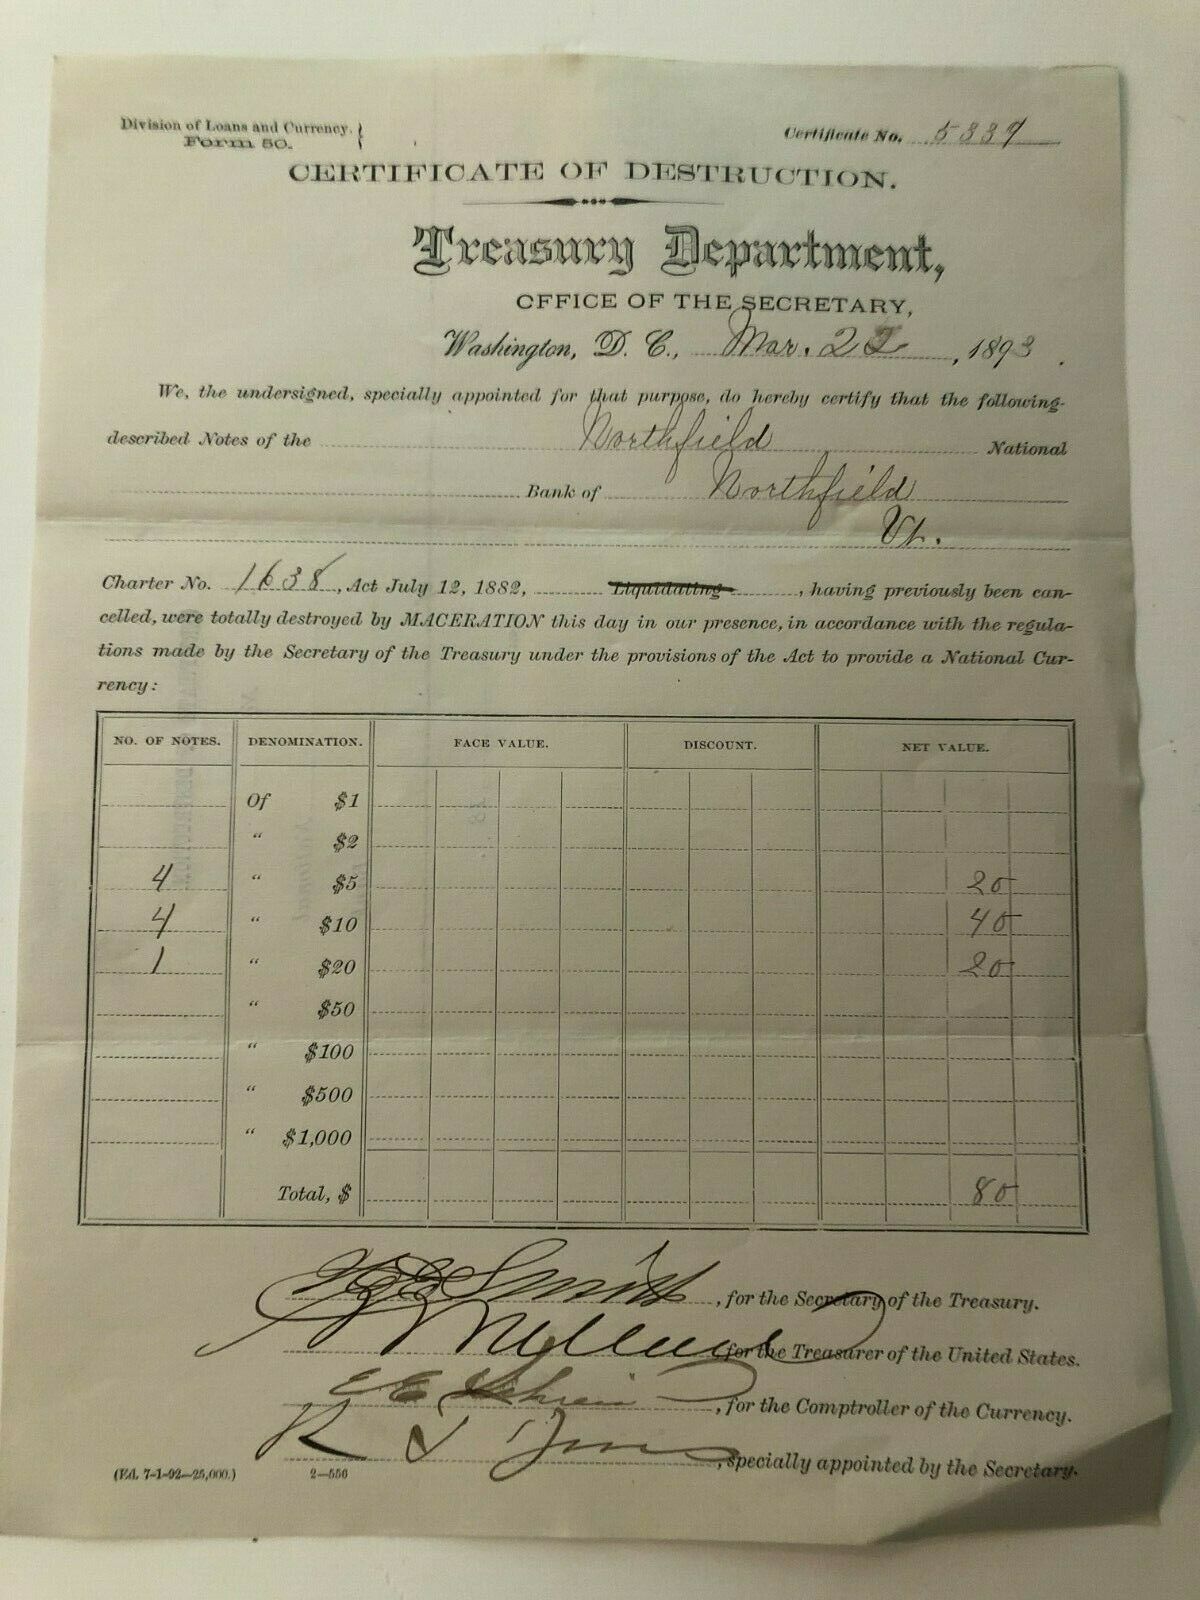 Division of Loans and Currency.
Form 50.
Certificate No. 5339
CERTIFICATE OF DESTRUCTION.
Treasury Department,
OFFICE OF THE SECRETARY,
Washington, D. C., Mar. 22, 1893.
We, the undersigned, specially appointed for that purpose, do hereby certify that the following-
described Notes of the Northfield National
Bank of Northfield
Vt.
Charter No. 1638, Act July 12, 1882, Liquidating, having previously been can-
celled, were totally destroyed by MACERATION this day in our presence, in accordance with the regula-
tions made by the Secretary of the Treasury under the provisions of the Act to provide a National Cur-
rency:
NO. OF NOTES. DENOMINATION. FACE VALUE. DISCOUNT. NET VALUE.
Of $1
" $2
4 " $5 20
4 " $10 40
1 " $20 20
" $50
" $100
" $500
" $1,000
Total, $ 80
Smith, for the Secretary of the Treasury.
for the Treasurer of the United States.
, for the Comptroller of the Currency.
, specially appointed by the Secretary.
(Ed. 7-1-92—25,000.) 2—556